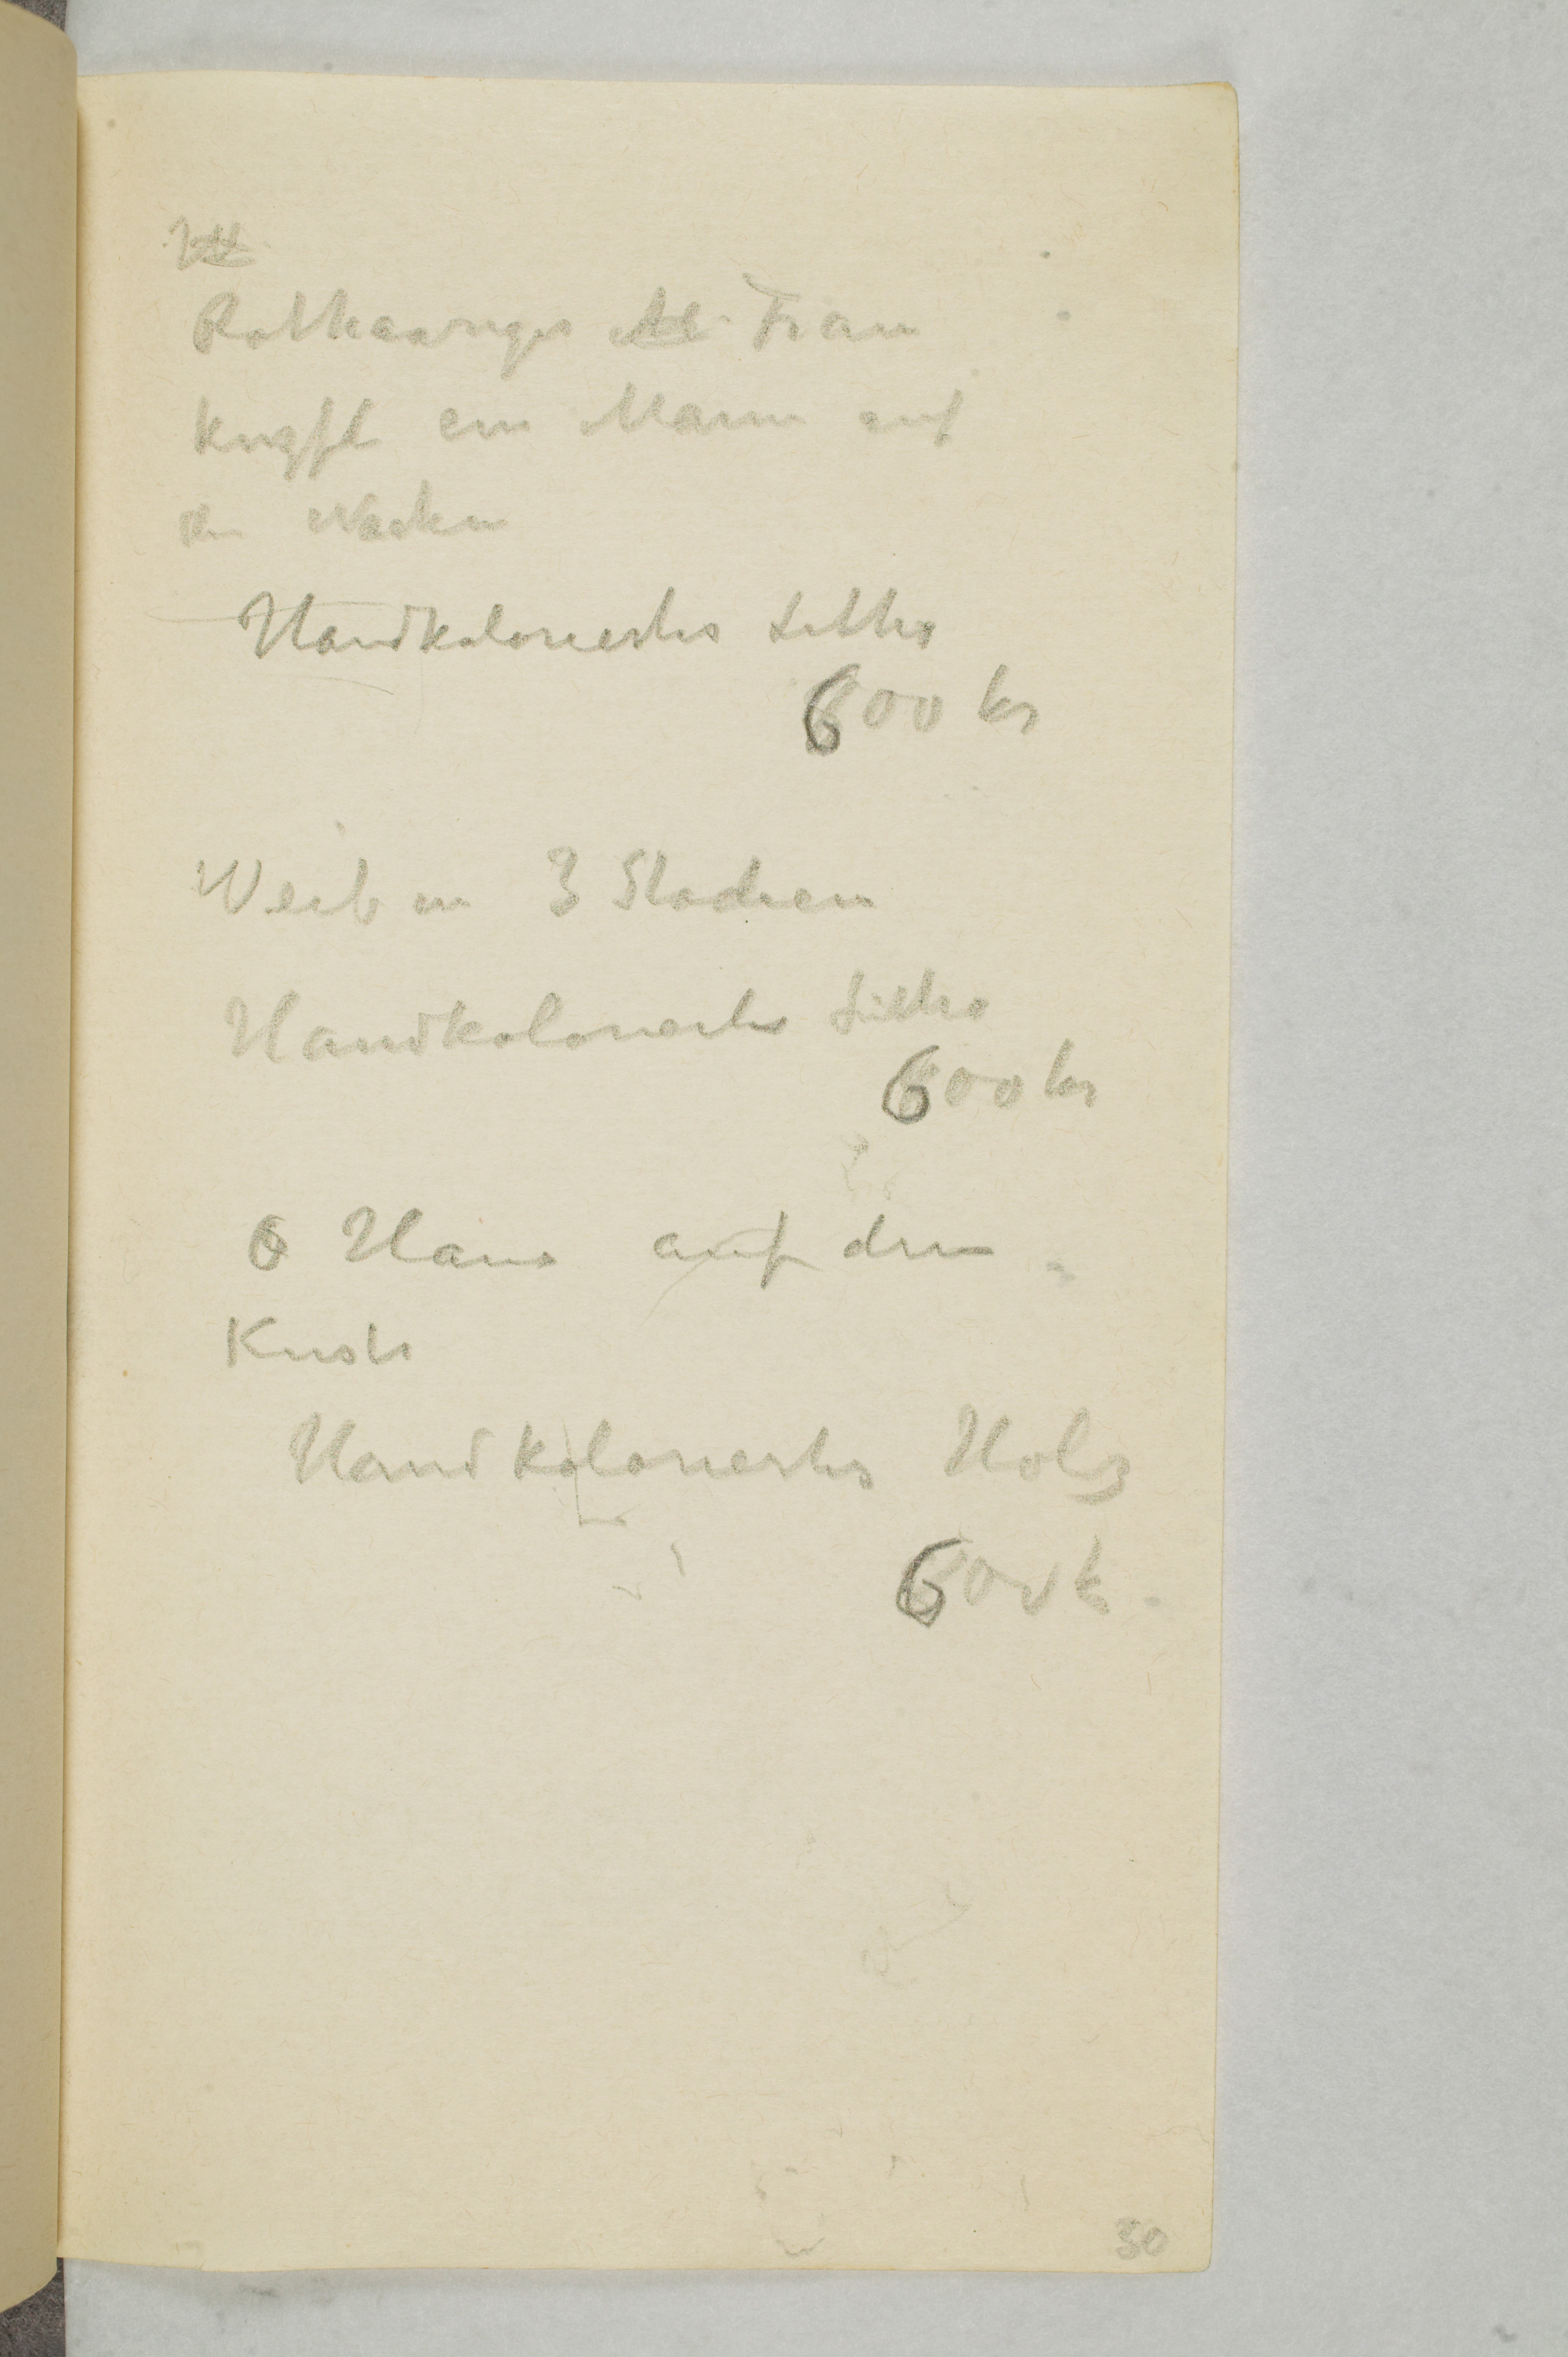 Rothaariges Frau
küpft ein Mann auf
den Nacken
Handkoloriertes Litho
600 kr
Weib in 3 Stadien
Handkoloriertes Litho
600 kr
Haus auf den
Küste
Handkoloriertes Holz
600 k
50